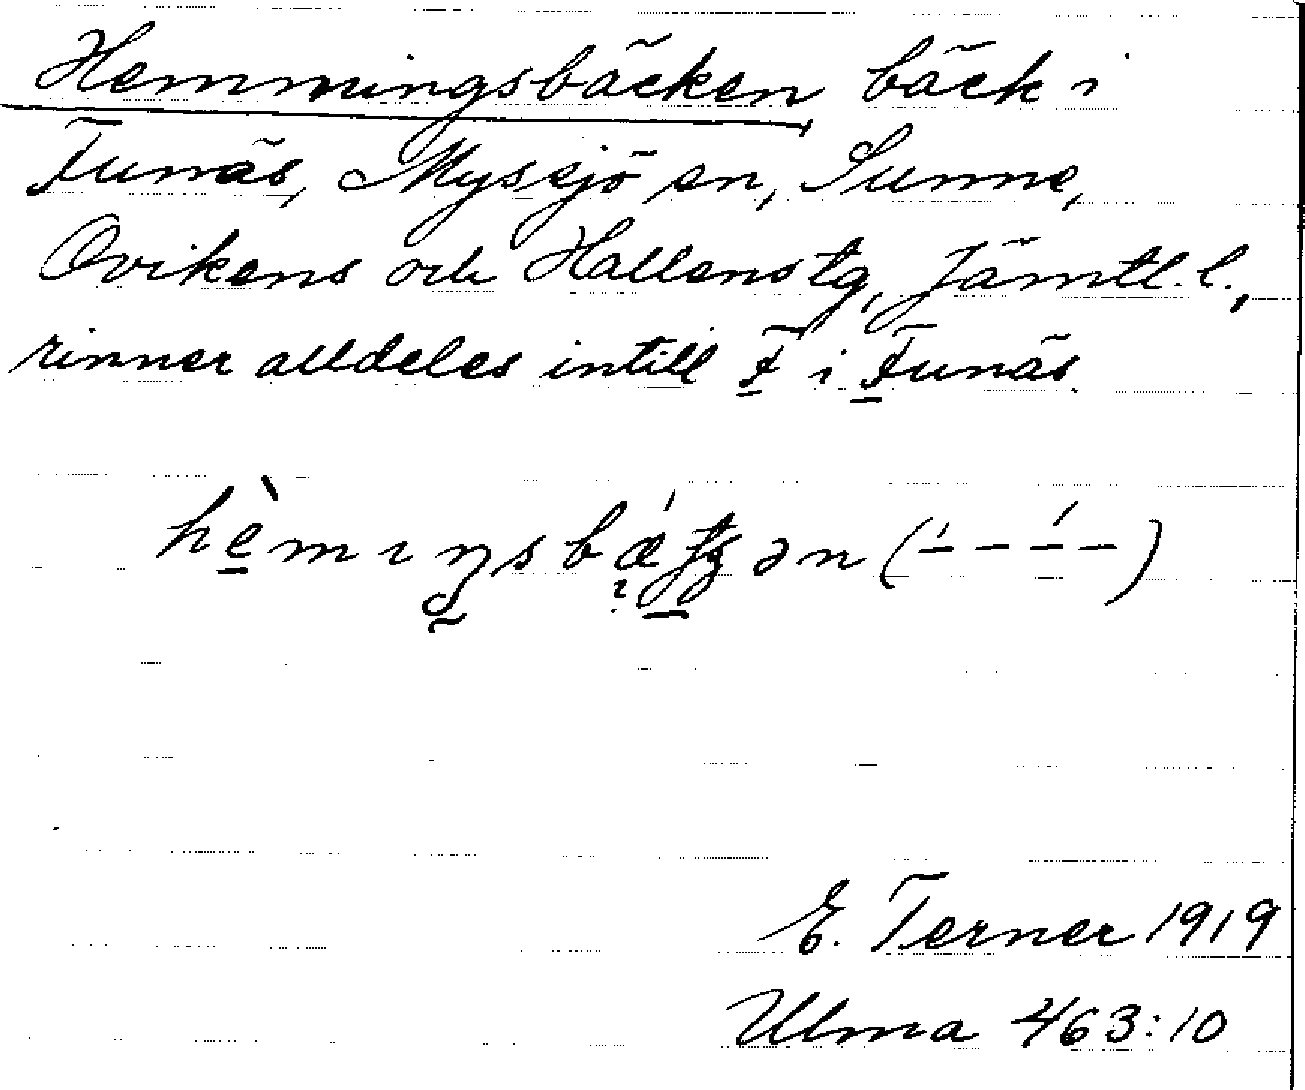 Hemmingsbäcken bäck i
Funäs, Myssjö sn, Sunne,
Ovikens och Hallens tg, Jämtl. l.,
rinner alldeles intill F i Funäs.
E. Terner 1919
Ulma 463:10